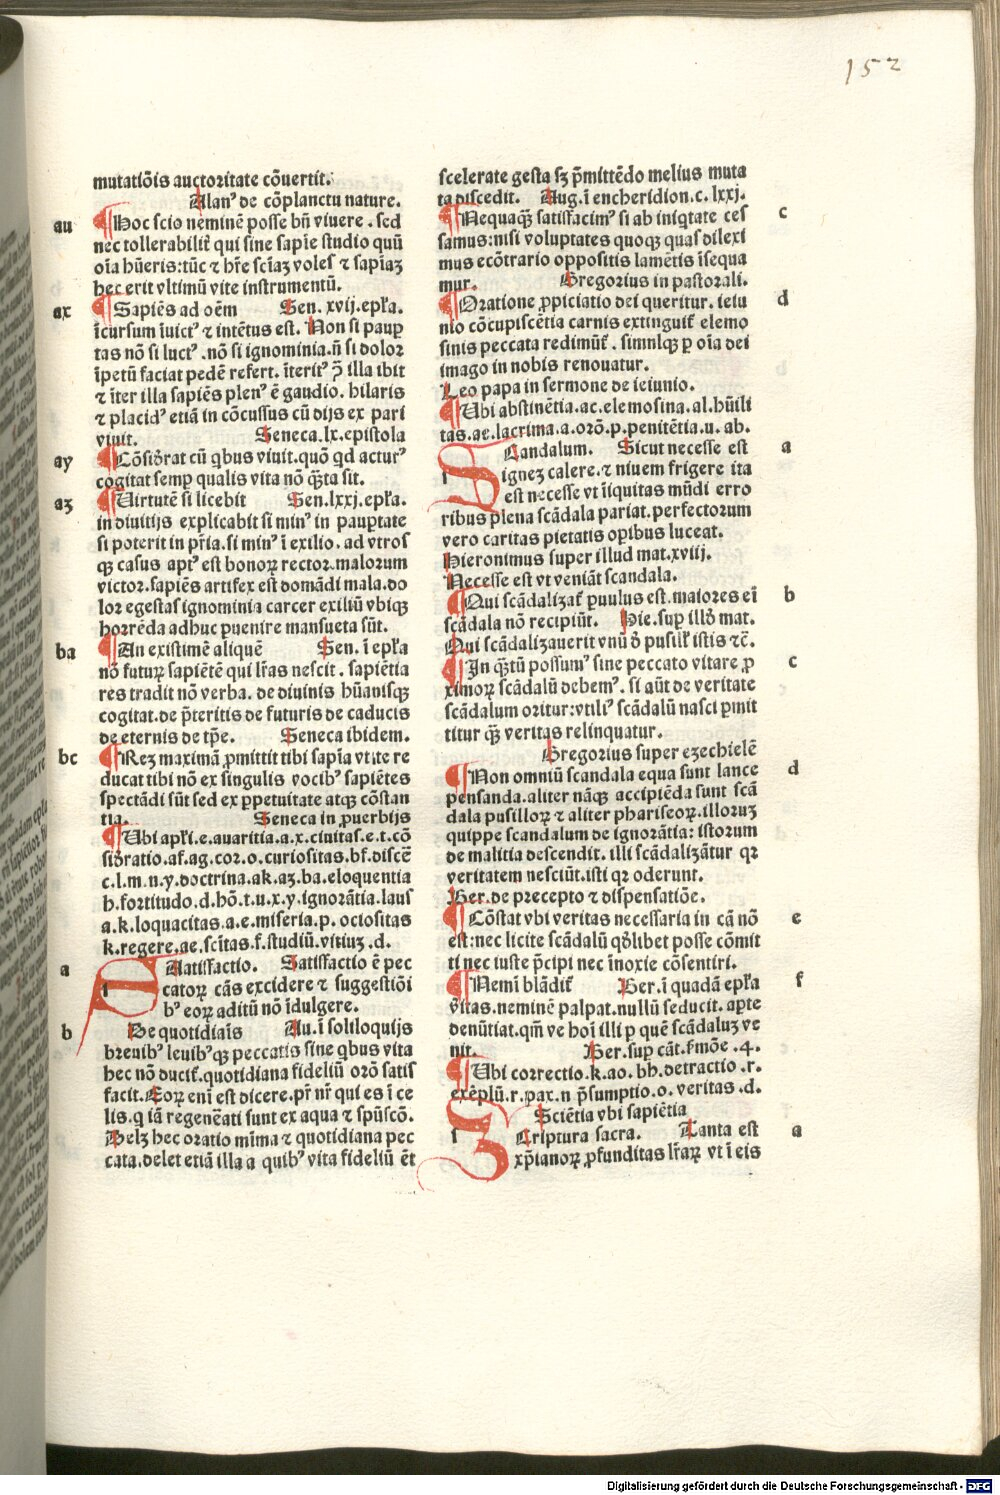 152
mutatiōis auctoritate cōuertit.
Alanꝰ de cōplanctu nature.
au
¶Hoc scio neminē posse bn̄ viuere . sed
nec tollerabilit̄ qui sine sapīe studio quū
oīa hūeris:tūc ⁊ hr̄e scīaꝫ voles ⁊ sapīaꝫ
hec erit vltimū vite instrumentū.
ax
¶Sapiēs ad oēm Sen. xvij.ep̄ła.
īcursum īuictꝰ ⁊ intētus est. Non si paup̲
tas nō si luctꝰ .nō si ignominia.n̄ si dolor
īpetū faciat pedē refert. īteritꝰ p̄ illa ibit
⁊ īter illa sapiēs plenꝰ ē gaudio. hilaris
⁊ placidꝰ etiā in cōcussus cū dijs ex pari
viuit. Seneca.lx.epistola
ay
¶Cōsiđrat cū q̇bus viuit.quō qđ acturꝰ
cogitat semꝑ qualis vita nō q̄ta sit.
aꝫ
¶Uirtutē si licebit Sen.lxxj.epła.
in diuitijs explicabit si minꝰ in paup̲tate
si poterit in pr̄ia.si minꝰ ī exilio. ad vtros
qꝫ casus aptꝰ est bonoꝝ rector.malorum
victor.sapiēs artifex est domādi mala.do
lor egestas ignominia carcer exiliū vbiqꝫ
horrēda adhuc ꝑuenire mansueta sūt.
ba
¶An existimē aliquē Sen. ī epła
nō futuꝝ sapiētē qui lr̄as nescit . sapiētia
res tradit nō verba. de diuinis hūanisqꝫ
cogitat.de p̄teritis de futuris de caducis
de eternis de tp̄e. Seneca ibidem.
bc
¶Reꝫ maximā ꝓmittit tibi sapīa vt ite re
ducat tibi nō ex singulis vocibꝰ sapiētes
spectādi sūt sed ex ꝑpetuitate atqꝫ cōstan
tia. Seneca in ꝓuerbijs
¶Ubi apłi.e.auaritia.a.x.ciuitas.e.t.cō
siđratio.af.ag.cor.o.curiositas.bf.discē
c.l.m.n.y.doctrina.ak.aꝫ.ba.eloquentia
h.fortitudo.d.hō.t.u.x.y.ignorātia.laus
a.k.loquacitas.a.e.miseria.p. ociositas
k.regere.ae.scītas.f.studiū.vitiuꝫ .d.
a
Aatisfactio. Satisfactio ē pec
catoꝝ cās excidere ⁊ suggestiōi
bꝰ eoꝝ aditū nō īdulgere.
b
De quotidiaīs Au.ī soliloquijs
breuibꝰ leuibꝰqꝫ peccatis sine q̇bus vita
hec nō ducit̄.quotidiana fideliū orō satis
facit.Eoꝝ enī est dicere.pr̄ nr̄ qui es ī ce
lis.q iā regenēati sunt ex aqua ⁊ spūscō.
Delꝫ hec oratio mīma ⁊ quotidiana pec
cata.delet etiā illa a quibꝰ vita fideliū ēt
scelerate gesta sꝫ p̄mittēdo melius muta
ta discedit. Aug.ī encheridion.c. lxxj.
c
¶Nequaqꝫ̄ satisfacimꝰ si ab iniq̇tate ces
samus:nisi voluptates quoqꝫ quas dilexi
mus ecōtrario oppositis lamētis īsequa
mur. Gregorius in pastorali.
d
¶Oratione ꝓpiciatio dei queritur. ieiu
nio cōcupiscētia carnis extinguit̄ elemo
sinis peccata redimūt̄ . simulqꝫ ꝑ oīa dei
imago in nobis renouatur.
Leo papa in sermone de ieiunio.
¶Ubi abstinētia.ac.elemosina.al.hūili
tas.ae.lacrima.a.orō.p.penitētia.u. ab.
a
Candalum. Sicut necesse est
ignez calere.⁊ niuem frigere ita
est necesse vt iīquitas mūdi erro
ribus plena scādala pariat.perfectorum
vero caritas pietatis oꝑibus luceat.
Hieronimus super illud mat.xviij.
Necesse est vt veniāt scandala.
b
¶Qui scādalizat̄ ꝑuulus est.maiores eī
scādala nō recipiūt. Hie.suꝑ illđ mat.
Qui scādalizauerit vnū đ pusilł istis ⁊c̄.
c
¶In qꝫ̄tū possumꝰ sine peccato vitare ꝓ
ximoꝝ scādalū debemꝰ. si aūt de veritate
scādalum oritur:vtiliꝰ scādalū nasci ꝑmit
titur qꝫ̄ veritas relinquatur.
Gregorius super ezechielē
d
¶Non omniū scandala equa sunt lance
pensanda.aliter nāqꝫ accipiēda sunt scā
dala pusilloꝝ ⁊ aliter phariseoꝝ.illoruꝫ
quippe scandalum de ignorātia: istorum
de malitia descendit. illi scādalizātur qꝛ
veritatem nesciūt.isti qꝛ oderunt.
Ber.de precepto ⁊ dispensatiōe.
e
¶Cōstat vbi veritas necessaria in cā nō
est:nec licite scādalū qđlibet posse cōmit
ti nec iuste p̄cipi nec īnoxie cōsentiri.
f
¶Nemī blādit̄ Ber.ī quadā epła
v̄itas.neminē palpat.nullū seducit. aꝑte
denūtiat.qm̄ ve hoī illi ꝑ quē scādaluꝫ ve
nit. Ber.suꝑ cāt.f̄mōe .4.
¶Ubi correctio.k.ao. bh.detractio .r.
exēplū.r.pax.n p̄sumptio.o. veritas .d.
Sciētia vbi sapiētia
a
Criptura sacra. Tanta est
xp̄ianoꝝ ꝓfunditas lr̄aꝝ vt ī eis
Digitalisierung gefördert durch die Deutsche Forschungsgemeinschaft - DFG